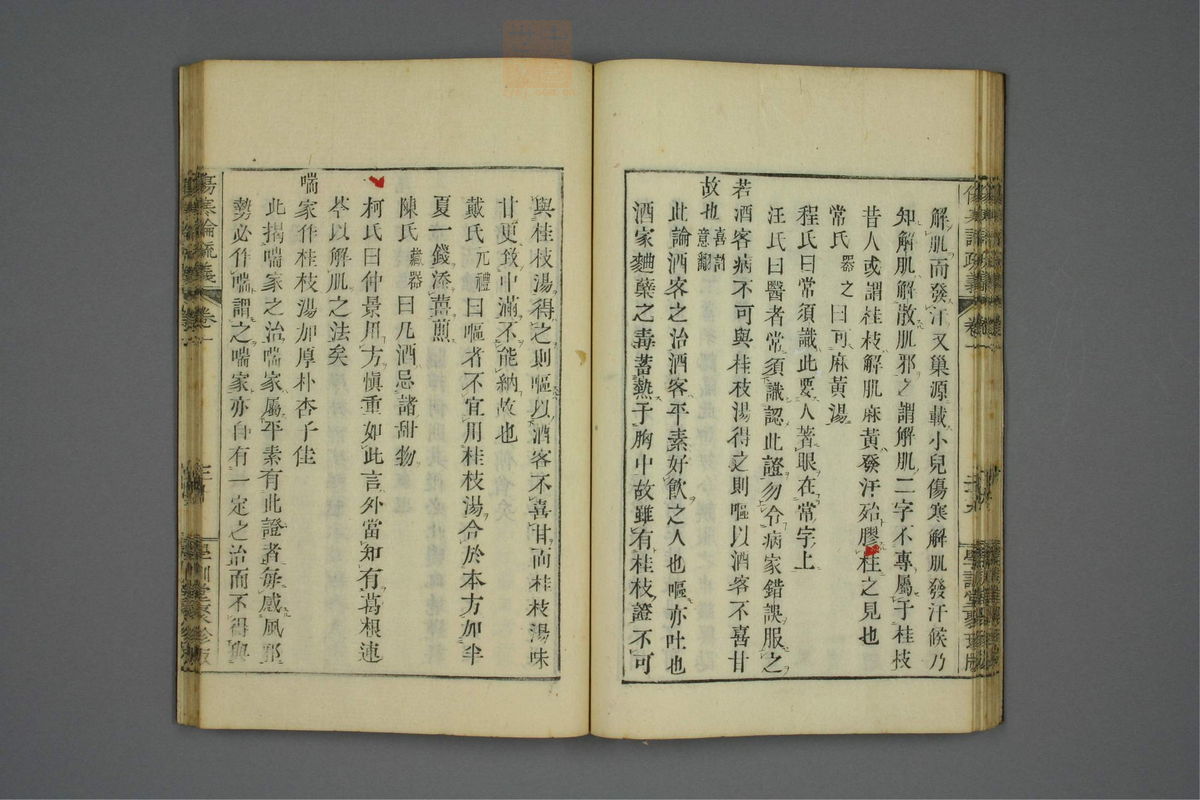 解肌而發汗又巢源載小兒傷寒解肌發汗候乃
知解肌解散肌邪之謂解肌二字不專屬于桂枝
昔人或謂桂枝解肌麻黃發汗殆膠桂之見也
常氏器之曰可麻黃湯
程氏曰常須識此要人著眼在常字上
汪氏曰醫者常須識認此證勿令病家錯誤服之
若酒客病不可與桂枝湯得之則嘔以酒客不喜甘
故也喜討意翻
此論酒客之治酒客平素好飲之人也嘔亦吐也
酒家麯蘖之毒蓄熱于胸中故雖有桂枝證不可
與桂枝湯得之則嘔以酒客不喜甘而桂枝湯味
甘更致中滿不能納故也
戴氏元禮曰嘔者不宜用桂枝湯合於本方加半
夏一錢添薑煎
陳氏藏器曰凡酒忌諸甜物
柯氏曰仲景用方慎重如此言外當知有葛根連
芩以解肌之法矣
喘家作桂枝湯加厚朴杏子佳
此揭喘家之治喘家屬平素有此證者每感風邪
勢必作喘謂之喘家亦自有一定之治而不得與
傷寒論疏義 卷一